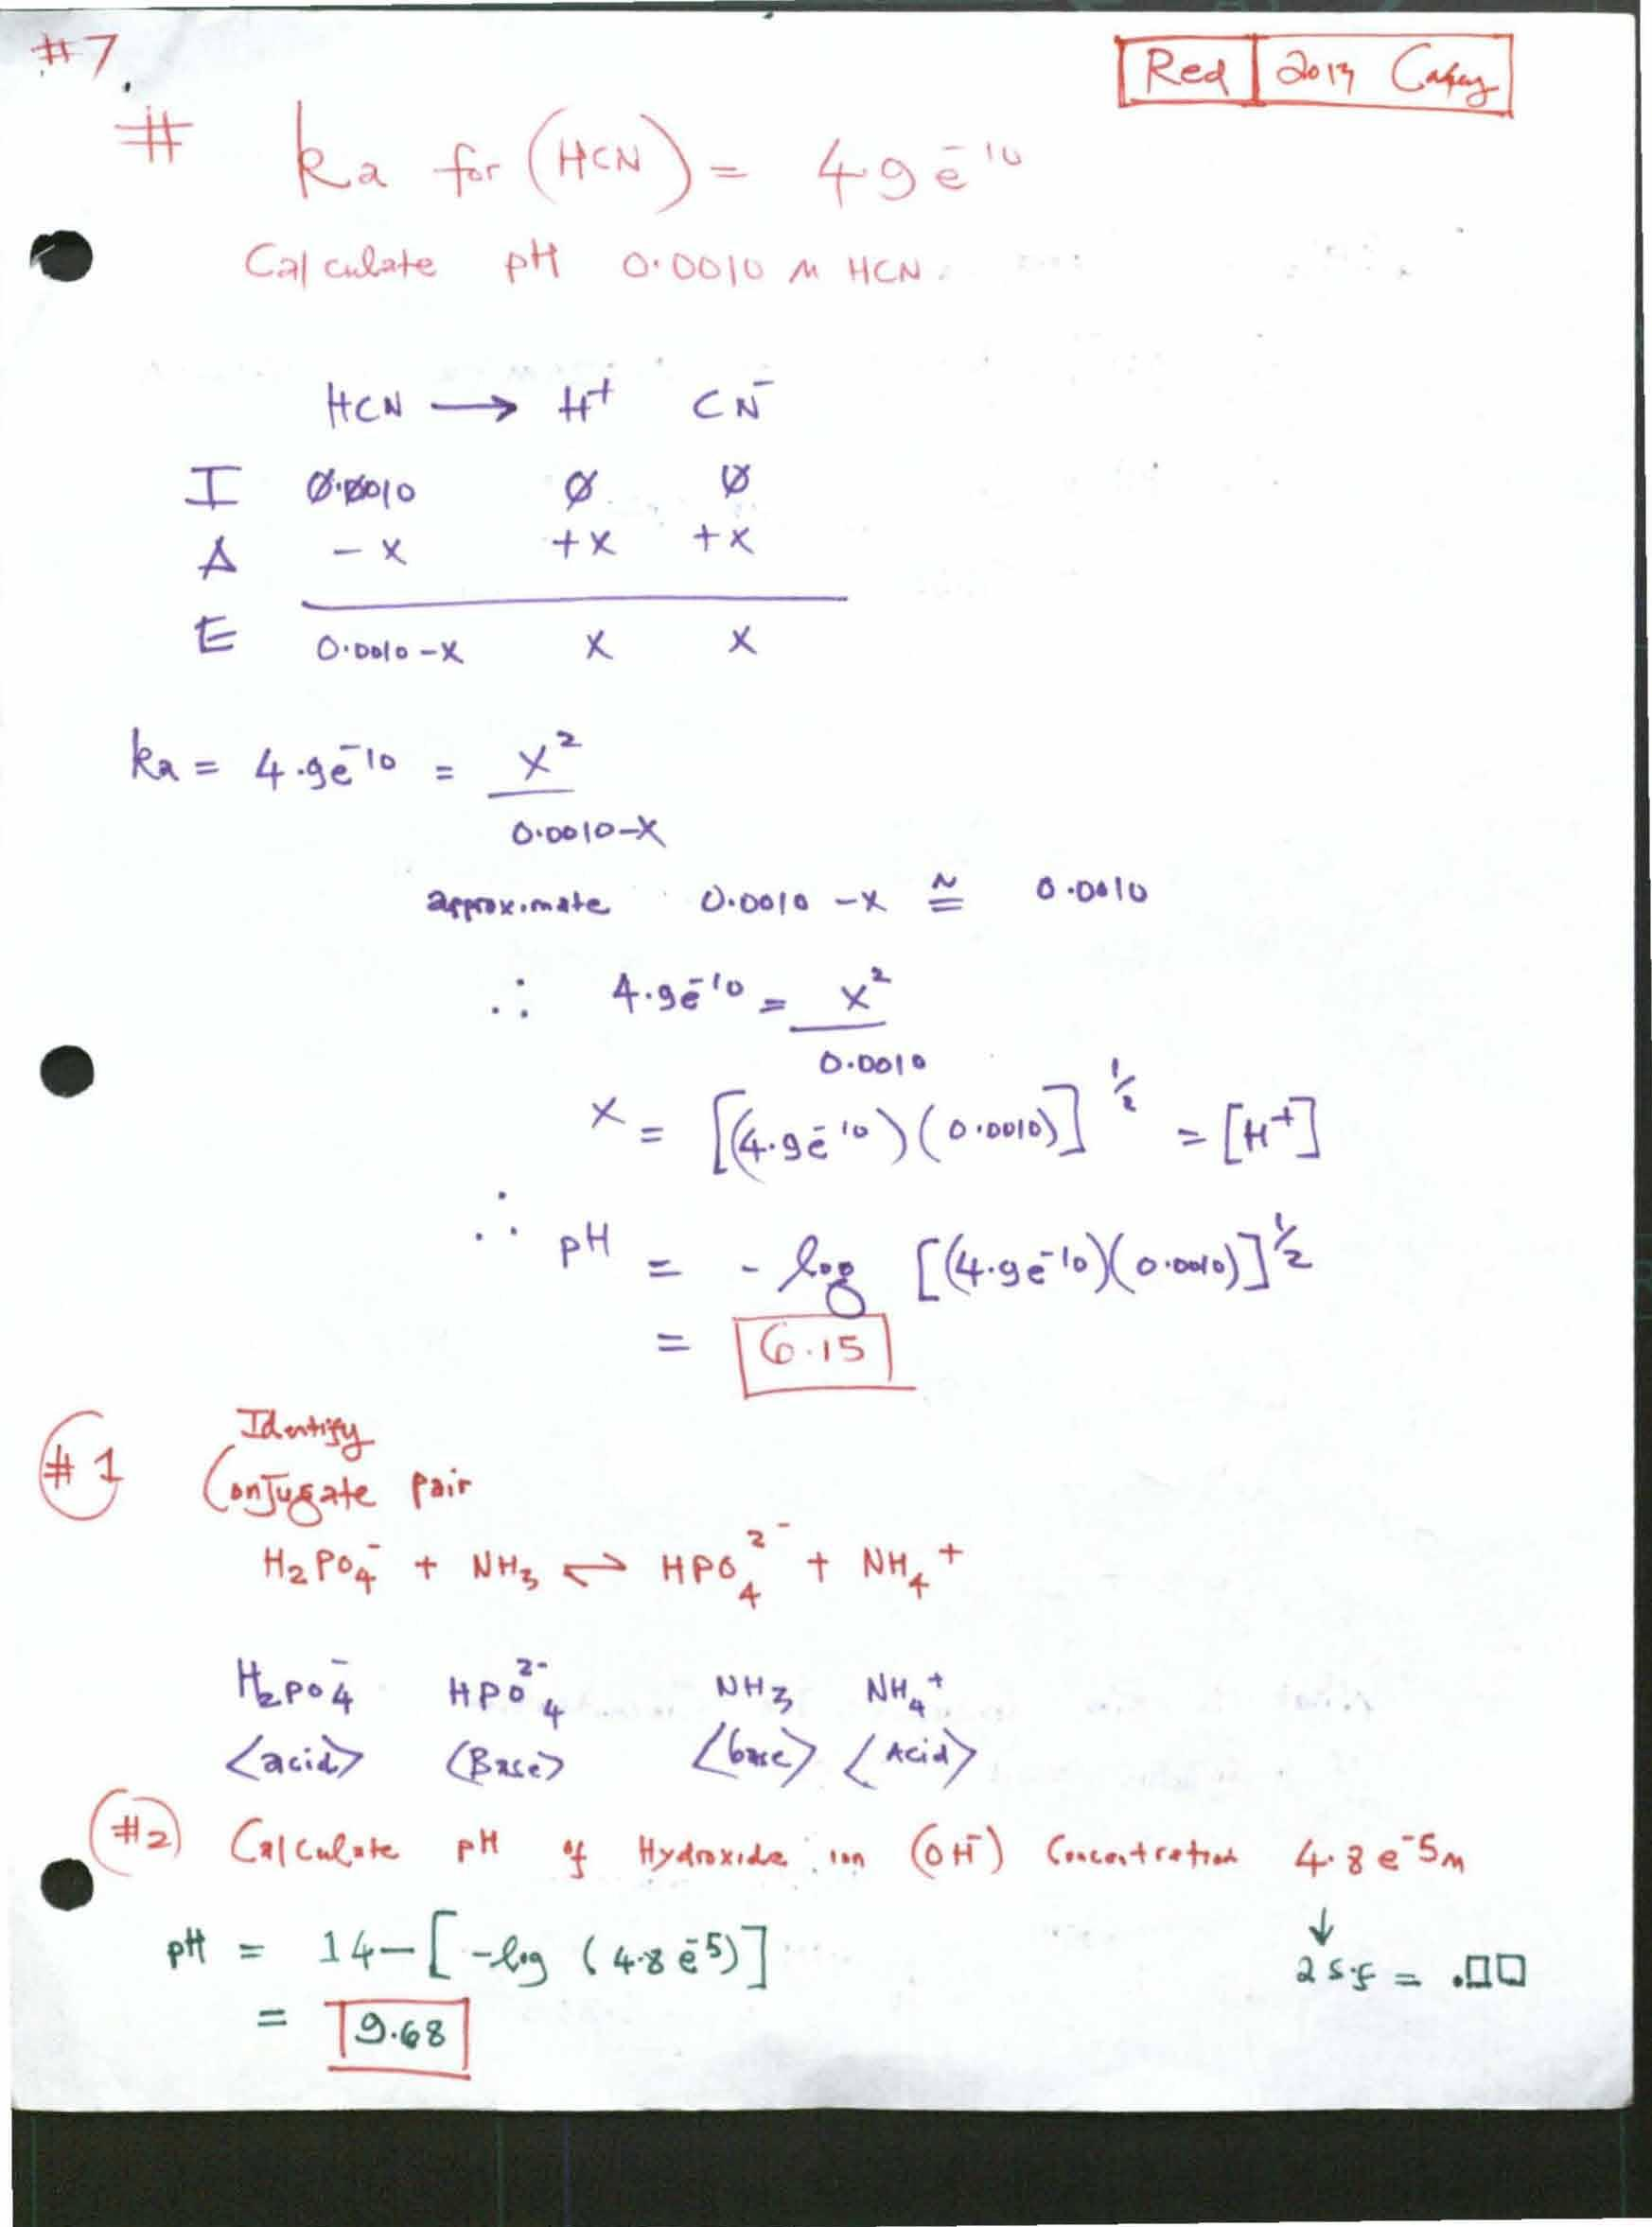 #7.
Red 2019
# Ka for (HCN) = 4.9 e⁻¹⁰
Calculate pH 0.0010 M HCN.
HCN → H⁺ CN⁻
I 0.0010 0 0
Δ -x +x +x
E 0.0010-x x x
Ka = 4.9e⁻¹⁰ = x²
0.0010-x
approximate 0.0010 -x ≅ 0.0010
∴ 4.9e⁻¹⁰ = x²
0.0010
x = [(4.9e⁻¹⁰)(0.0010)]^½ = [H⁺]
∴ pH = - log [(4.9e⁻¹⁰)(0.0010)]^½
= 6.15
#1 Identify
Conjugate pair
H₂PO₄⁻ + NH₃ ⇌ HPO₄²⁻ + NH₄⁺
H₂PO₄⁻ HPO₄²⁻ NH₃ NH₄⁺
<acid> <Base> <base> <Acid>
#2 Calculate pH of Hydroxide ion (OH⁻) Concentration 4.8 e⁻⁵M
↓
pH = 14-[-log (4.8 e⁻⁵)] 2 s.f = .□□
= 9.68